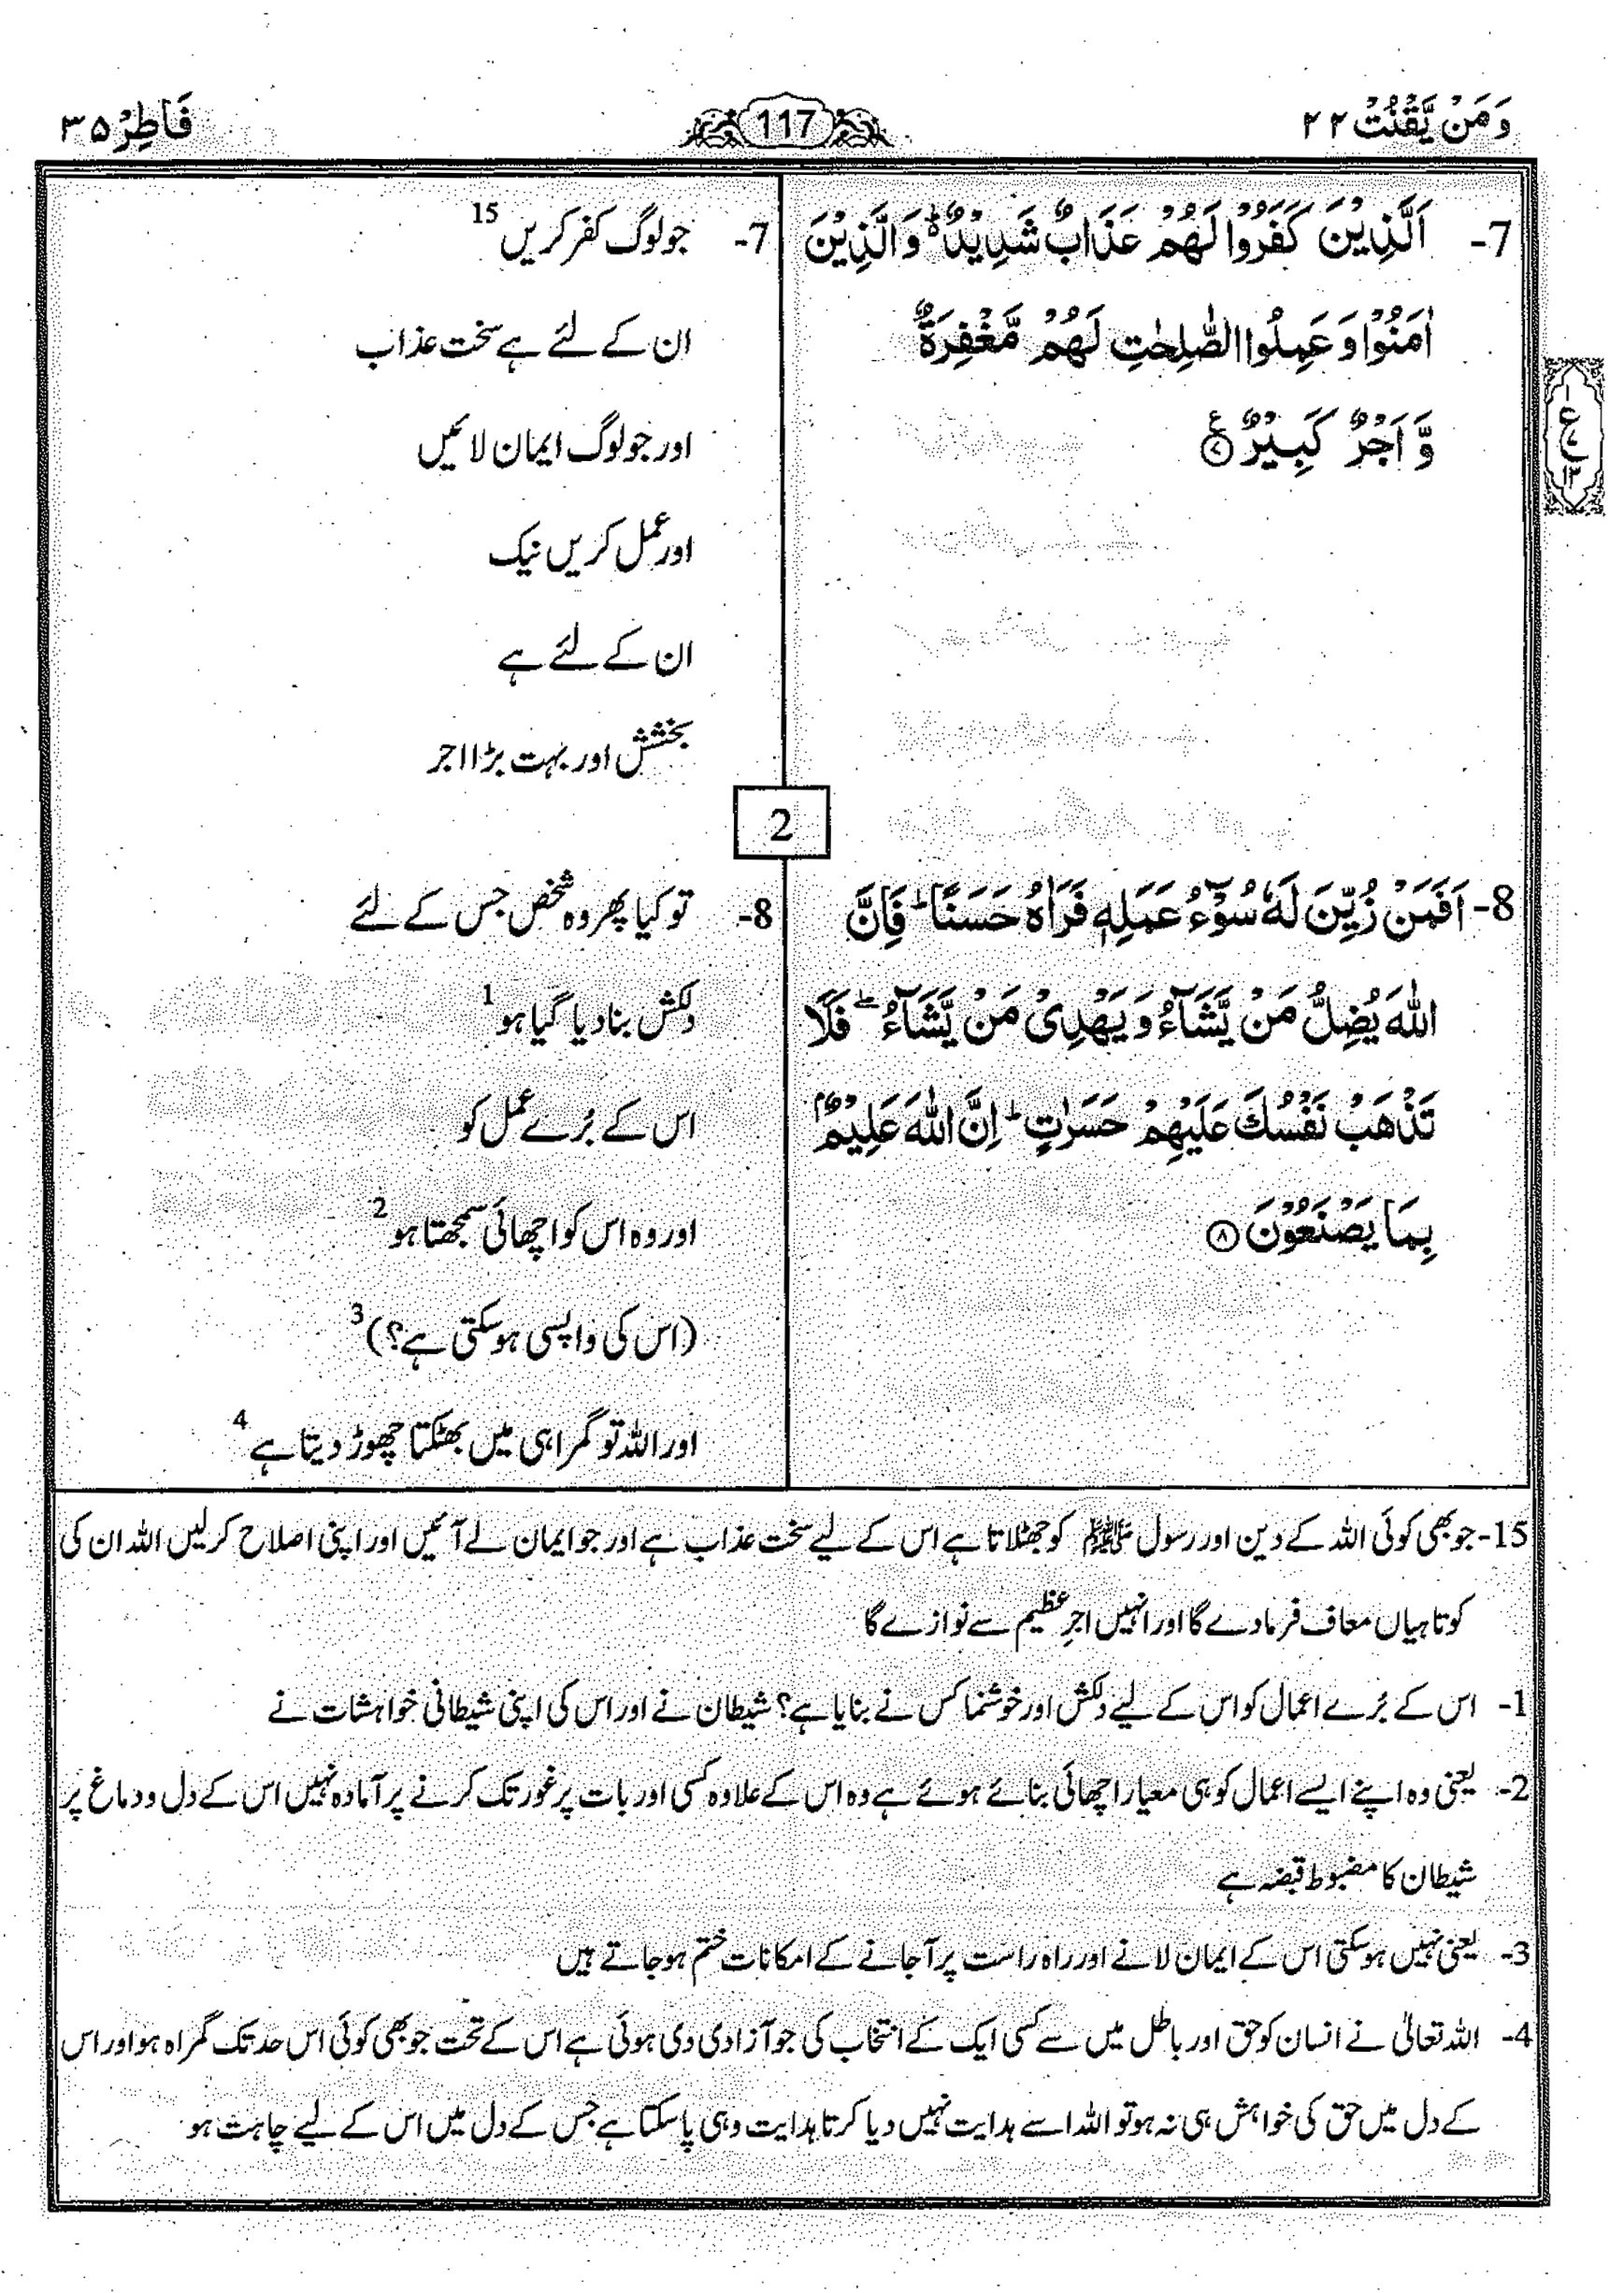 وَمَنْ يَّقْنُتْ ۲۲
117
فَاطِرْ ۳۵
7- اَلَّذِيْنَ كَفَرُوْا لَهُمْ عَذَابٌ شَدِيْدٌ ؕ وَالَّذِيْنَ
اٰمَنُوْا وَعَمِلُوا الصّٰلِحٰتِ لَهُمْ مَّغْفِرَةٌ
وَّاَجْرٌ كَبِيْرٌ ۷
7- جو لوگ کفر کریں 15
ان کے لئے ہے سخت عذاب
اور جو لوگ ایمان لائیں
اور عمل کریں نیک
ان کے لئے ہے
بخشش اور بہت بڑا اجر
2
8- اَفَمَنْ زُيِّنَ لَهٗ سُوْٓءُ عَمَلِهٖ فَرَاٰهُ حَسَنًا ؕ فَاِنَّ
اللّٰهَ يُضِلُّ مَنْ يَّشَآءُ وَيَهْدِيْ مَنْ يَّشَآءُ ۖ فَلَا
تَذْهَبْ نَفْسُكَ عَلَيْهِمْ حَسَرٰتٍ ؕ اِنَّ اللّٰهَ عَلِيْمٌۢ
بِمَا يَصْنَعُوْنَ ۸
8- تو کیا پھر وہ شخص جس کے لئے
دلکش بنا دیا گیا ہو 1
اس کے بُرے عمل کو
اور وہ اس کو اچھائی سمجھتا ہو 2
(اس کی واپسی ہو سکتی ہے؟) 3
اور اللہ تو گمراہی میں بھٹکتا چھوڑ دیتا ہے 4
15- جو بھی کوئی اللہ کے دین اور رسول ﷺ کو جھٹلاتا ہے اس کے لیے سخت عذاب ہے اور جو ایمان لے آئیں اور اپنی اصلاح کر لیں اللہ ان کی
کوتاہیاں معاف فرما دے گا اور انہیں اجرِ عظیم سے نوازے گا
1- اس کے بُرے اعمال کو اس کے لیے دلکش اور خوشنما کس نے بنایا ہے؟ شیطان نے اور اس کی اپنی شیطانی خواہشات نے
2- یعنی وہ اپنے ایسے اعمال کو ہی معیار اچھائی بنائے ہوئے ہے وہ اس کے علاوہ کسی اور بات پر غور تک کرنے پر آمادہ نہیں اس کے دل و دماغ پر
شیطان کا مضبوط قبضہ ہے
3- یعنی نہیں ہو سکتی اس کے ایمان لانے اور راہ راست پر آ جانے کے امکانات ختم ہو جاتے ہیں
4- اللہ تعالیٰ نے انسان کو حق اور باطل میں سے کسی ایک کے انتخاب کی جو آزادی دی ہوئی ہے اس کے تحت جو بھی کوئی اس حد تک گمراہ ہو اور اس
کے دل میں حق کی خواہش ہی نہ ہو تو اللہ اسے ہدایت نہیں دیا کرتا ہدایت وہی پا سکتا ہے جس کے دل میں اس کے لیے چاہت ہو